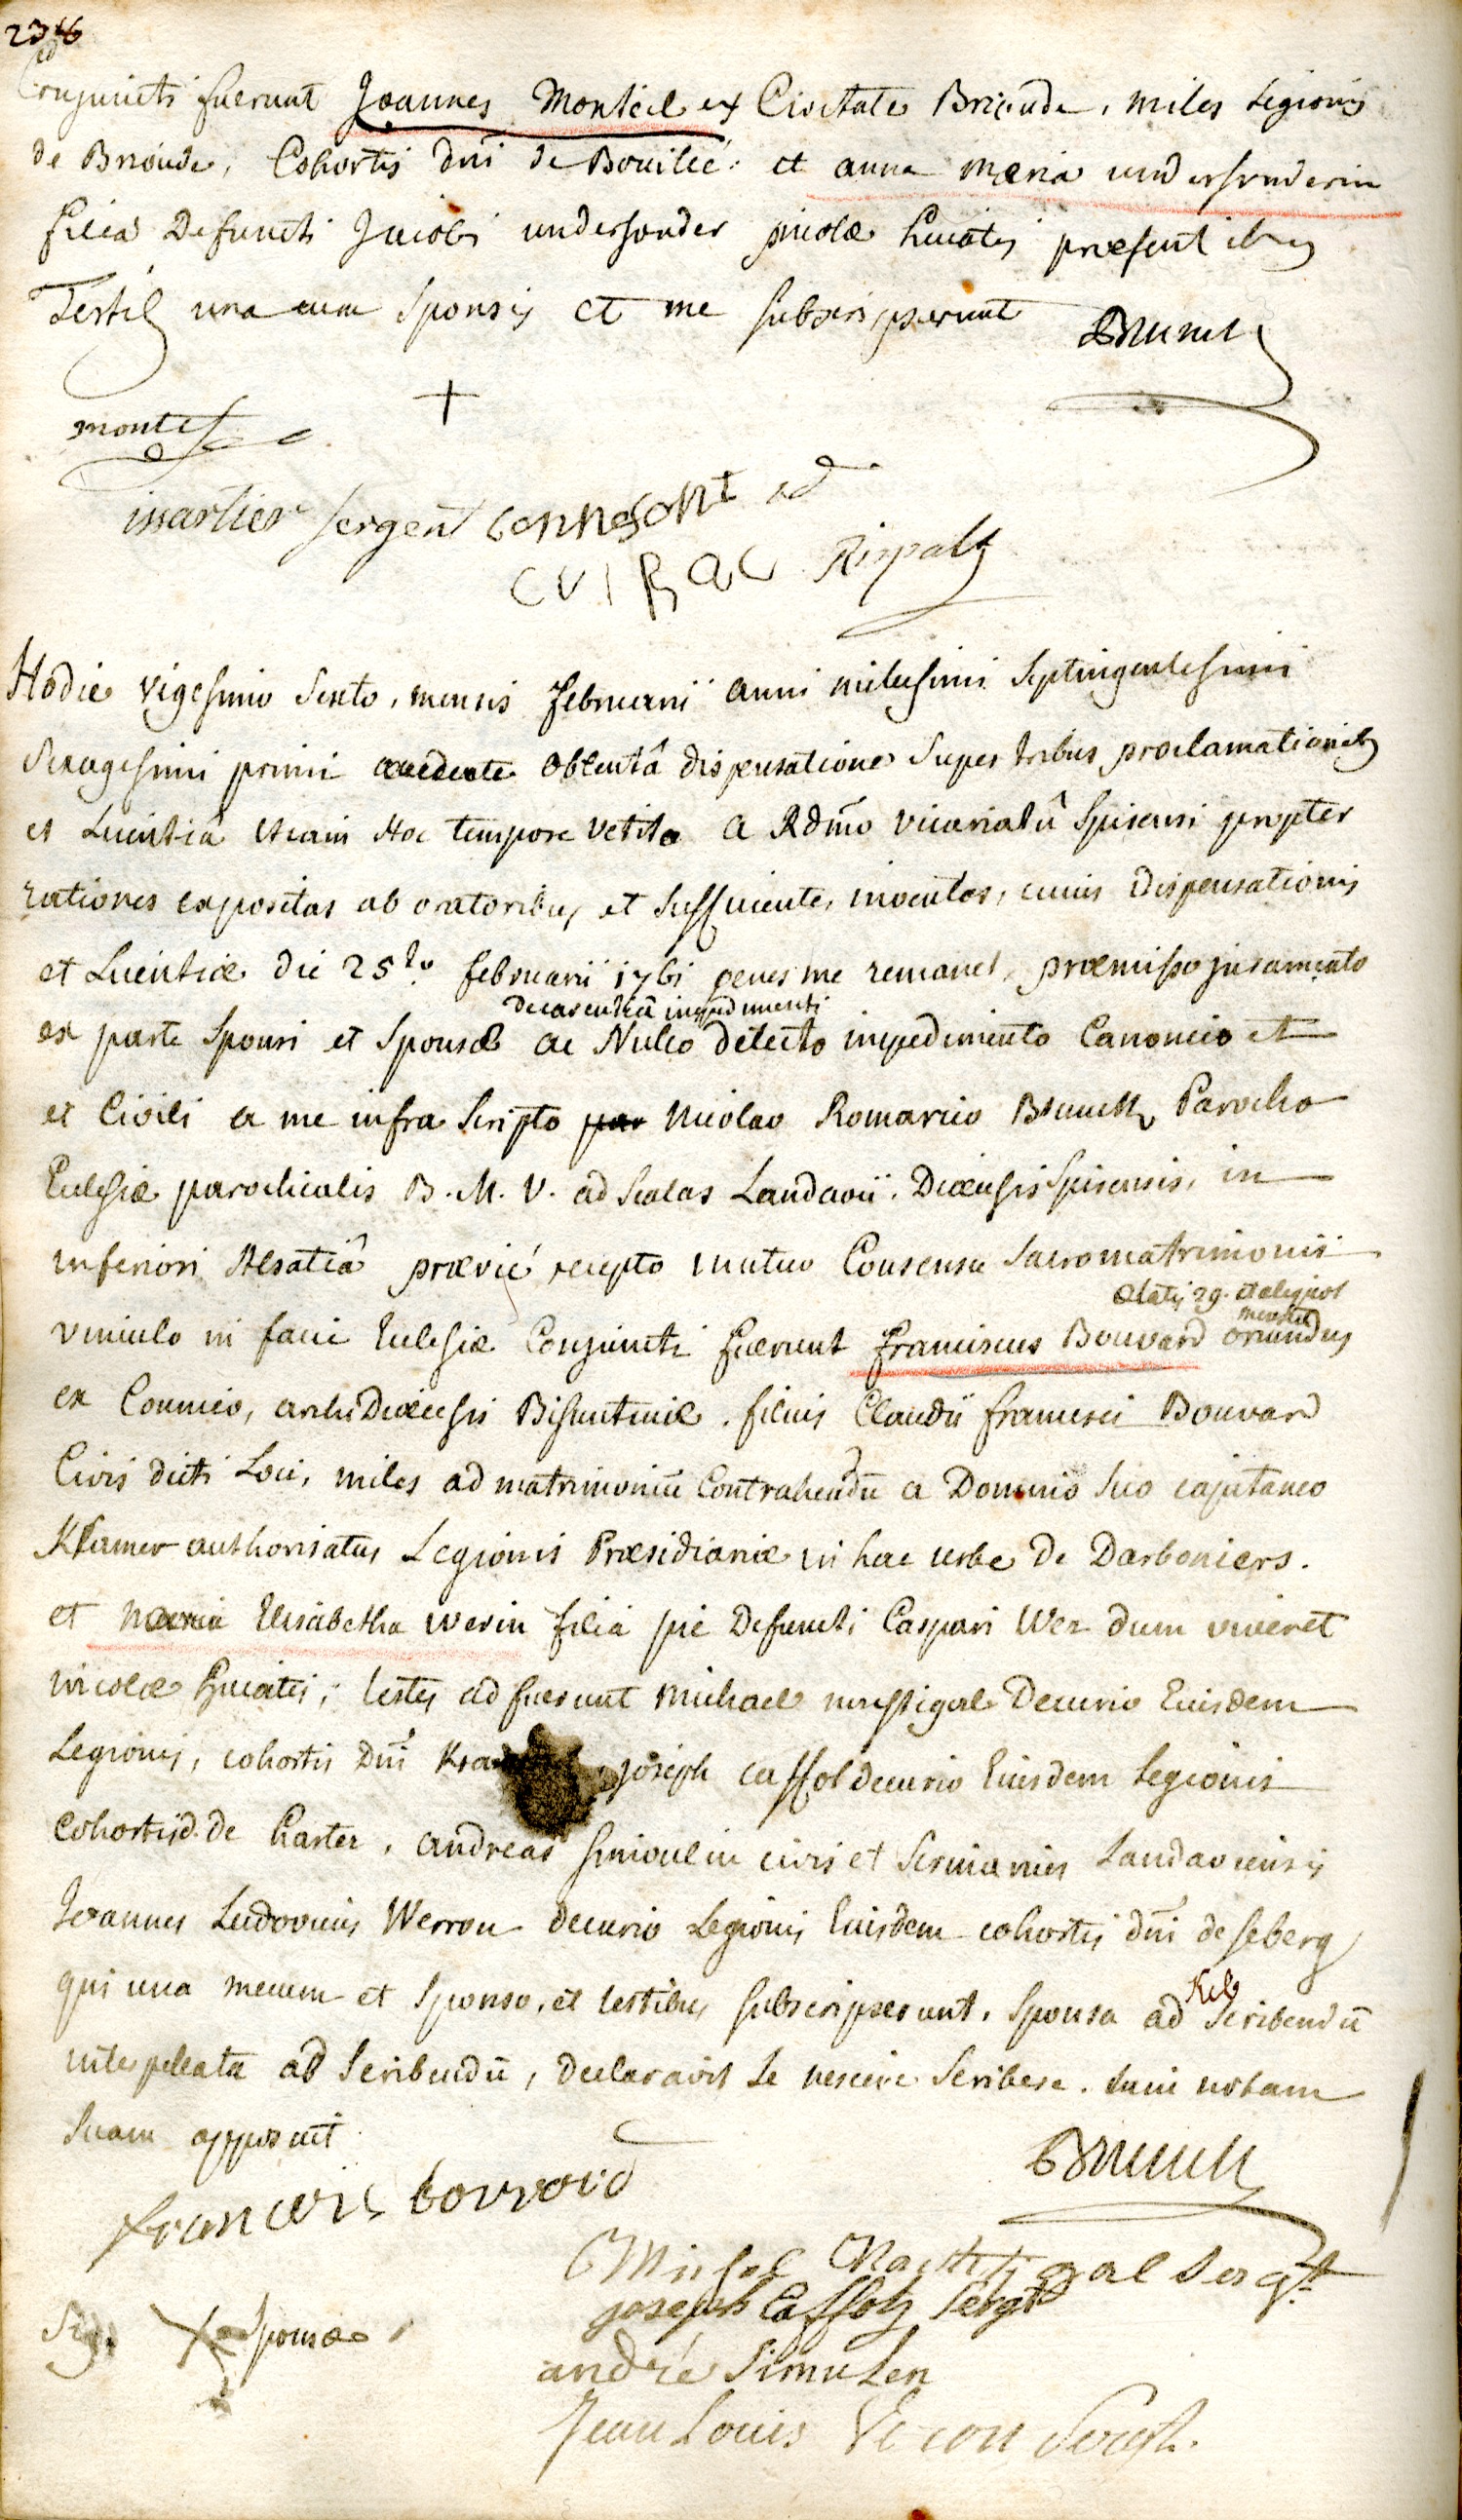 236
Conjuncti fuerunt Joannes Monteil ex Civitate Brioude, miles Legionis
de Brioude, Cohortis dni de Bouilée: et anna maria undersunderin
filia Defuncti Jacobi undersonder incolæ huiatis præsentibus
Testib una cum Sponsis et me subscripserunt Brunet
+
monteil
issartier sergent connesont
CUIRAC Rispal
Hodie vigesimo Sexto, mensis februarii anni millesimi Septingentesimi
Sexagesimi primi accedente obtentâ dispensatione Super tribus proclamationib
et Licentiâ etiam Hoc tempore vetito a Rdmo vicariatû Spirensi propter
rationes expositas ab oratoribus et Sufficientes inventas, cuius Dispensationis
et Licentiæ die 25to februarii 1761 penes me remanet, præmisso juramento
de carentiâ impedimenti
ex parte Sponsi et Sponsæ ac Nullo detecto impedimento Canonico et
et Civili a me infra Scripto par Nicolao Romarico Brunett Parocho
Ecclesiæ parochialis B. M. V. ad Scalas Landavii. Diœcesis Spirensis, in
inferiori Alsatiâ prævié recepto mutuo Consensu Sacro matrimonii
ætatis 29. et aliquot
mensium
vinculo in facie Ecclesiæ Conjuncti fuerunt franciscus Bouvard oriundus
ex Counico, archiDiœcesis Bisuntinæ. filius Claudii francisci Bouvard
Civis dicti Loci, miles ad matrimoniū Contrahendū a Domino Suo capitaneo
Kramer authorisatus Legionis Præsidiariæ in hac urbe De Darboniers.
et maria Elisabetha werin filia pie Defuncti Caspari Wer dum viveret
incolæ huiatis; testes ad fuerunt Michael Decurio Eiusdem
Legionis, cohortis Dni joseph caffol decurio Eiusdem Legionis
Cohortis d. de harter, andreas simoulin civis et Landaviensis
Joannes Ludovicus Werron decurio Legionis Eiusdem cohortis dni de seberg
qui una mecum et Sponso, et testibus subscripserunt, Sponsa ad Scribendū
interpellata ad Scribendū, declaravit Se nescire Scribere. Signum notam
Suam apposuit
Brunett
francois bouvard
Michel Nachtigal Sergt
joseph Caffolz Sergt
Sig. X Sponsæ
andré Simulen
Jean Louis Veron Sergt.